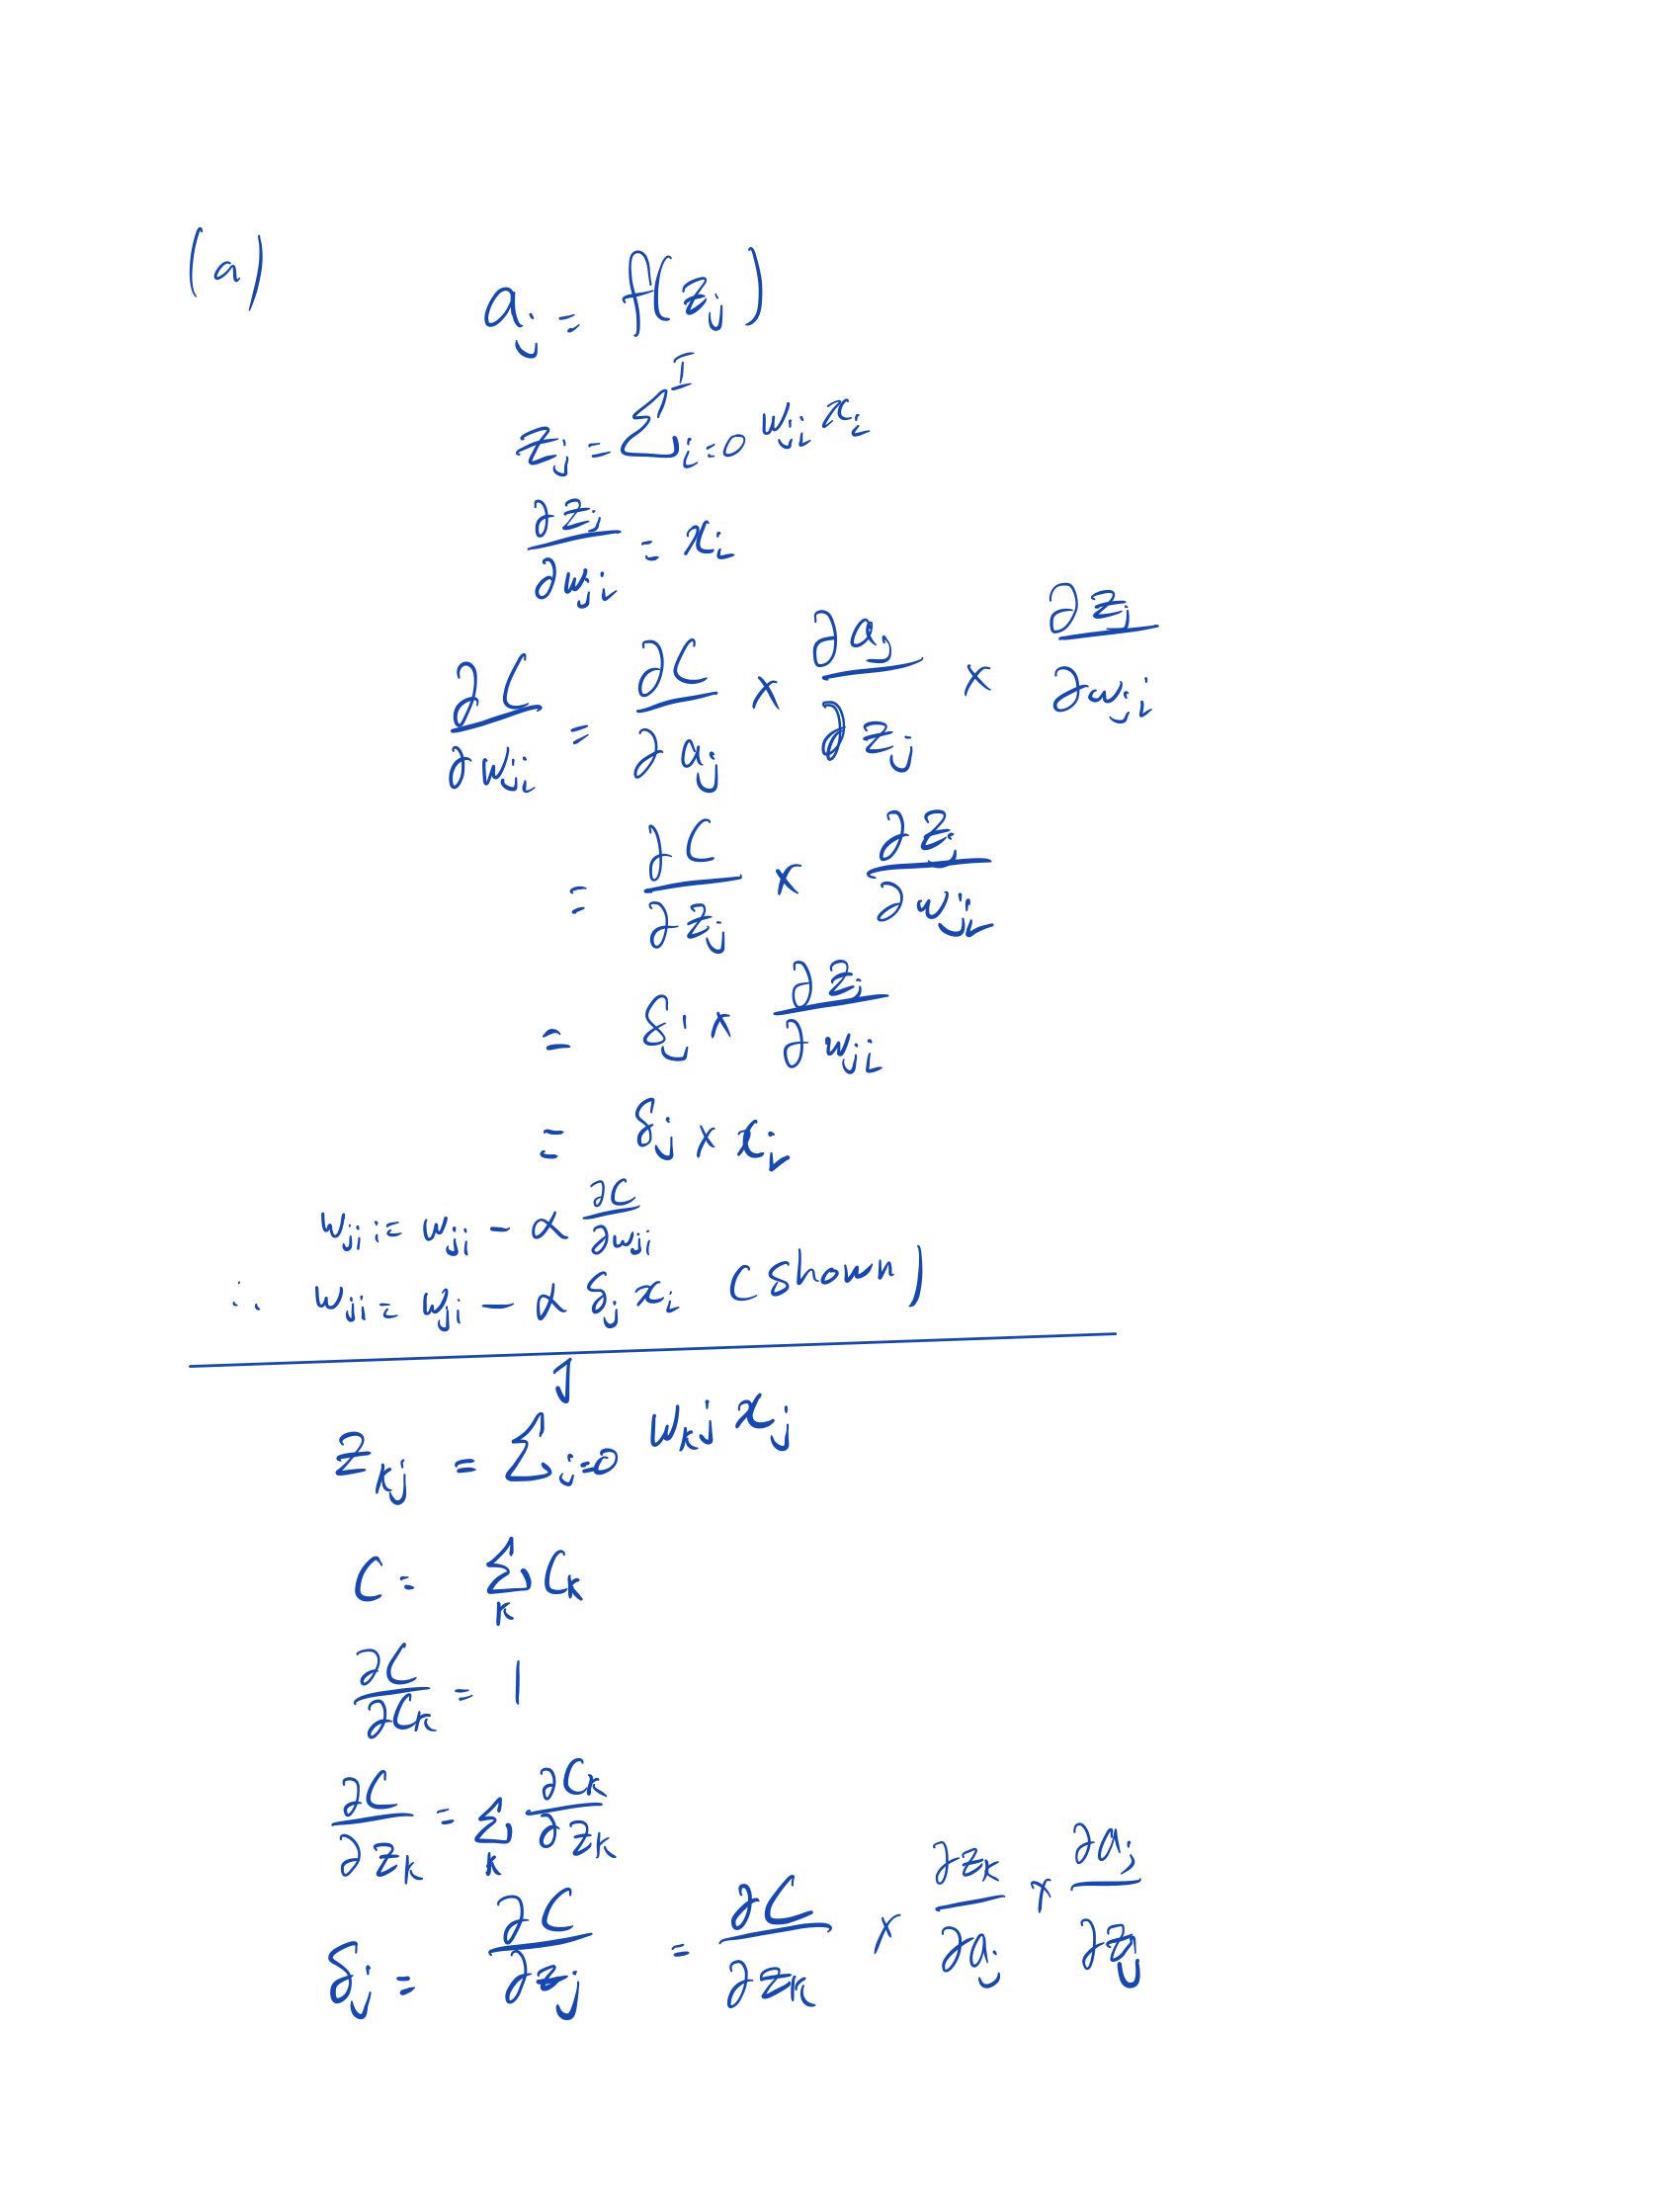 (a)
a_j = f(z_j)
z_j = ∑_{i=0}^{I} w_{ji} x_i
∂z_j/∂w_{ji} = x_i
∂C/∂w_{ji} = ∂C/∂a_j × ∂a_j/∂z_j × ∂z_j/∂w_{ji}
= ∂C/∂z_j × ∂z_j/∂w_{ji}
= δ_j × ∂z_j/∂w_{ji}
= δ_j × x_i
w_{ji} := w_{ji} - α ∂C/∂w_{ji}
∴ w_{ji} = w_{ji} - α δ_j x_i (shown)
z_{kj} = ∑_{j=0}^{J} w_{kj} x_j
C = ∑_k C_k
∂C/∂C_k = 1
∂C/∂z_k = ∑_k ∂C_k/∂z_k
δ_j = ∂C/∂z_j = ∂C/∂z_k × ∂z_k/∂a_j × ∂a_j/∂z_j